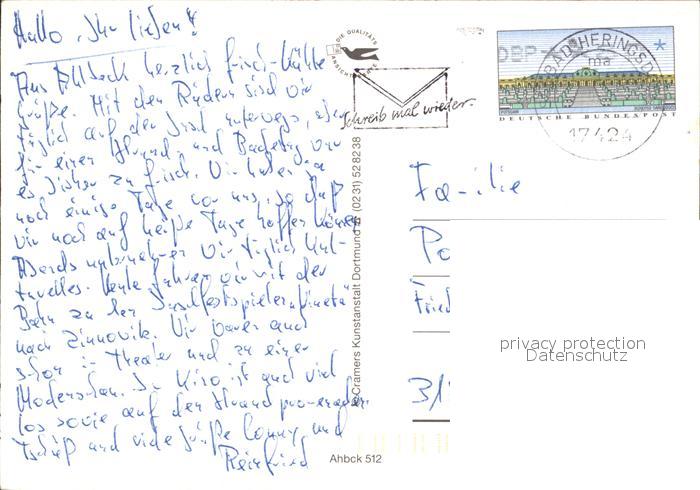 Hallo, Ihr Lieben!
Aus Ahlbeck herzlich frisch-kühle
Grüße. Mit den Rädern sind wir
täglich auf der Insel unterwegs, aber
für einen Strand und Badetag war
es bisher zu frisch. Wir haben
noch einige Tage vor uns, so daß
wir noch auf heiße Tage hoffen können
Abends unternehmen wir täglich Kul-
turelles. Heute fahren wir mit der
Bahn zu den Inselfestspielen Vineta
nach Zinnowitz. Wir waren auch
schon im Theater und zu einer
Modenschau. Im Kino ist auch viel
los sowie auf der Strandpromenade.
Tschüß und viele Grüße Conny und
Reinfried
DIE QUALITÄTS
ANSICHTSKARTE
Schreib mal wieder
DBP
DEUTSCHE BUNDESPOST
BAD HERINGSD
ma
17424
Cramers Kunstanstalt Dortmund ☎ (0231) 528238
Familie
Po
Fried
privacy protection
Datenschutz
Ahbck 512